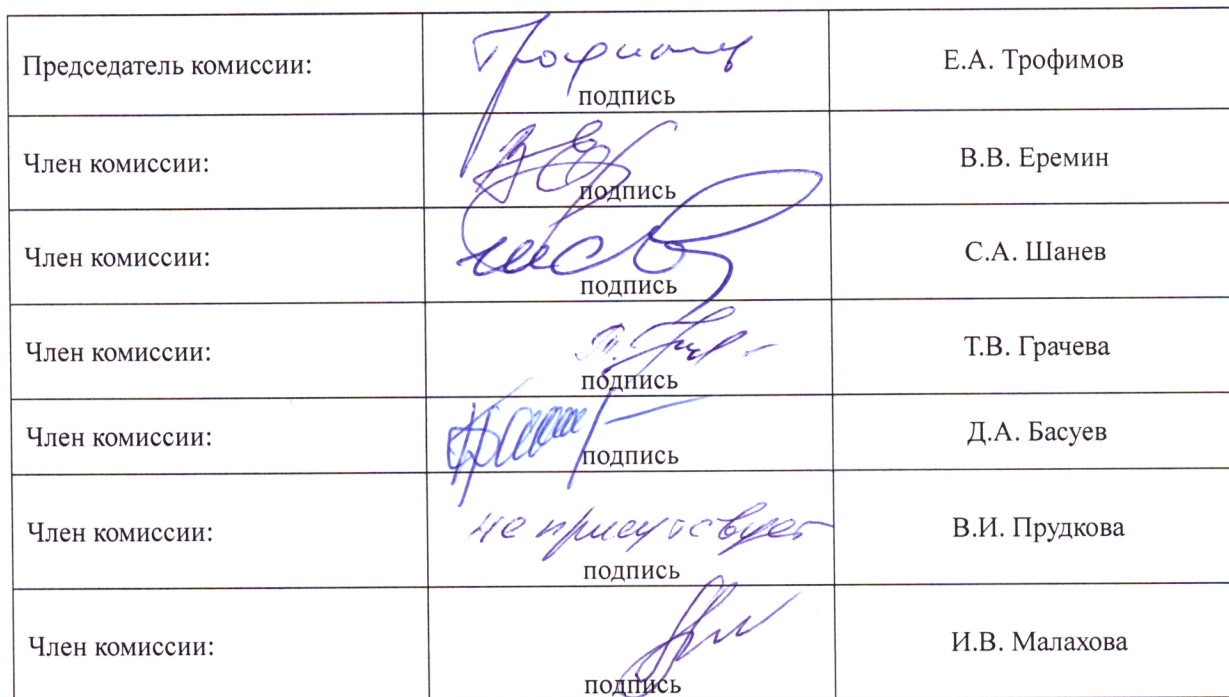 Председатель комиссии:
подпись
Е.А. Трофимов
Член комиссии:
подпись
В.В. Еремин
Член комиссии:
подпись
С.А. Шанев
Член комиссии:
подпись
Т.В. Грачева
Член комиссии:
подпись
Д.А. Басуев
Член комиссии:
не присутствует
подпись
В.И. Прудкова
Член комиссии:
подпись
И.В. Малахова